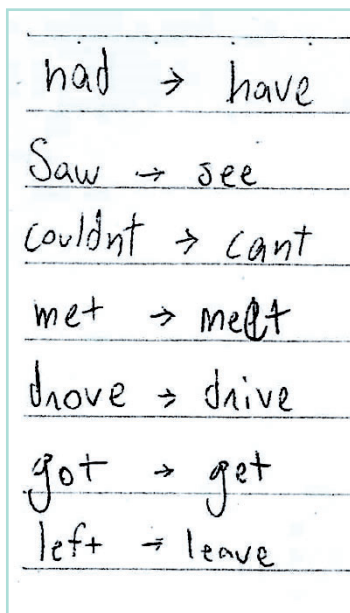 had → have
Saw → see
couldnt → cant
met → meet
drove → drive
got → get
left → leave